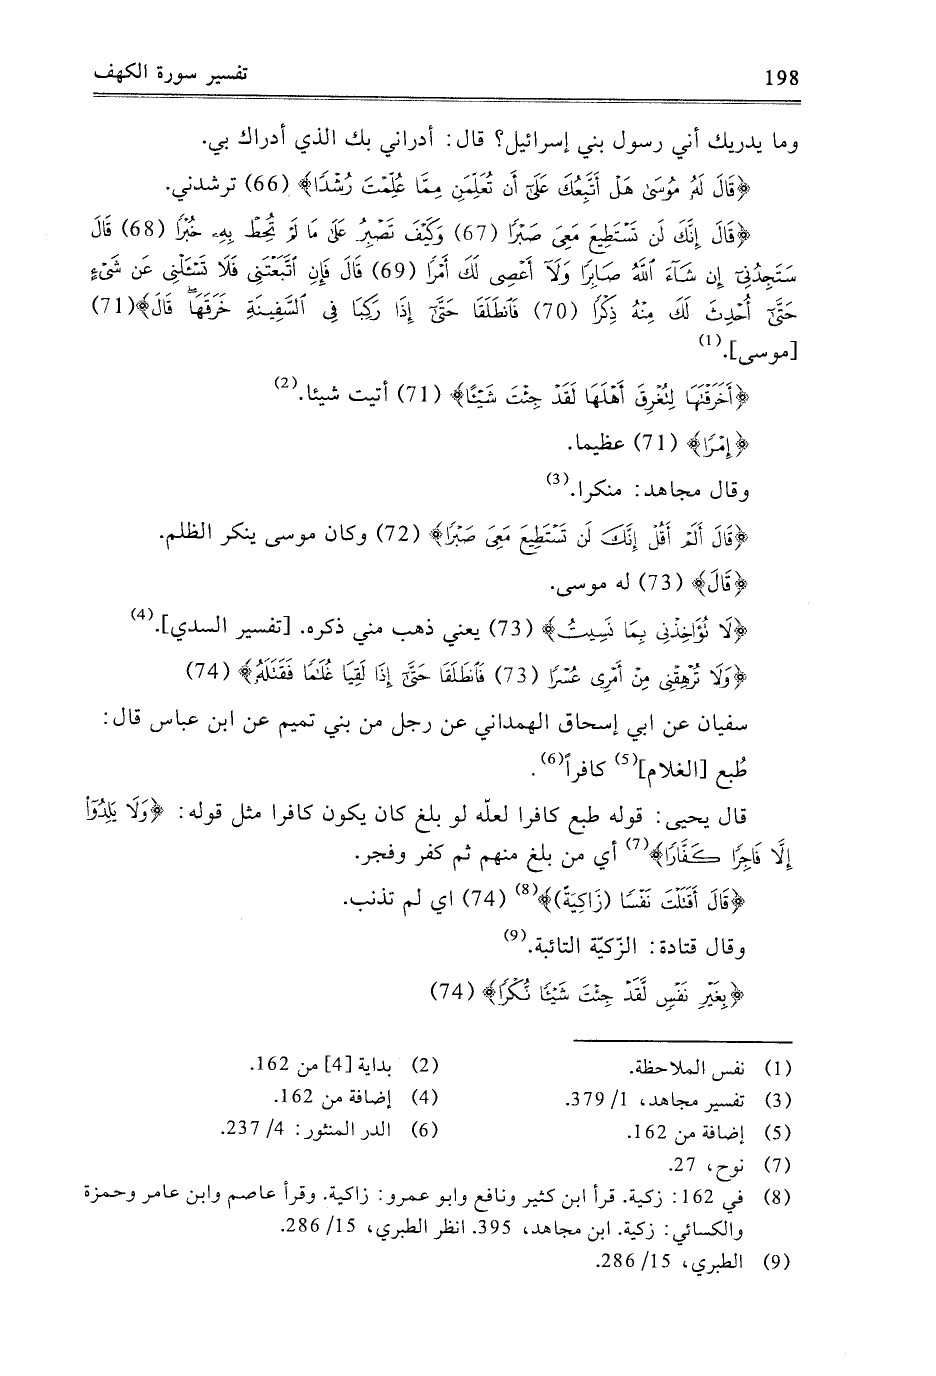 198 تفسير سورة الكهف
وما يدريك أني رسول بني إسرائيل؟ قال: أدراني بك الذي أدراك بي.
﴿قَالَ لَهُ مُوسَىٰ هَلْ أَتَّبِعُكَ عَلَىٰٓ أَن تُعَلِّمَنِ مِمَّا عُلِّمْتَ رُشْدًا﴾ (66) ترشدني.
﴿قَالَ إِنَّكَ لَن تَسْتَطِيعَ مَعِىَ صَبْرًا (67) وَكَيْفَ تَصْبِرُ عَلَىٰ مَا لَمْ تُحِطْ بِهِۦ خُبْرًا (68) قَالَ
سَتَجِدُنِىٓ إِن شَآءَ ٱللَّهُ صَابِرًا وَلَآ أَعْصِى لَكَ أَمْرًا (69) قَالَ فَإِنِ ٱتَّبَعْتَنِى فَلَا تَسْـَٔلْنِى عَن شَىْءٍ
حَتَّىٰٓ أُحْدِثَ لَكَ مِنْهُ ذِكْرًا (70) فَٱنطَلَقَا حَتَّىٰٓ إِذَا رَكِبَا فِى ٱلسَّفِينَةِ خَرَقَهَا ۖ قَالَ﴾(71)
[موسى].(1)
﴿أَخَرَقْتَهَا لِتُغْرِقَ أَهْلَهَا لَقَدْ جِئْتَ شَيْـًٔا﴾ (71) أتيت شيئا.(2)
﴿إِمْرًا﴾ (71) عظيما.
وقال مجاهد: منكرا.(3)
﴿قَالَ أَلَمْ أَقُلْ إِنَّكَ لَن تَسْتَطِيعَ مَعِىَ صَبْرًا﴾ (72) وكان موسى ينكر الظلم.
﴿قَالَ﴾ (73) له موسى.
﴿لَا تُؤَاخِذْنِى بِمَا نَسِيتُ﴾ (73) يعني ذهب مني ذكره. [تفسير السدي].(4)
﴿وَلَا تُرْهِقْنِى مِنْ أَمْرِى عُسْرًا (73) فَٱنطَلَقَا حَتَّىٰٓ إِذَا لَقِيَا غُلَٰمًا فَقَتَلَهُۥ﴾ (74)
سفيان عن ابي إسحاق الهمداني عن رجل من بني تميم عن ابن عباس قال:
طُبع [الغلام](5) كافراً(6).
قال يحيى: قوله طبع كافرا لعلّه لو بلغ كان يكون كافرا مثل قوله: ﴿وَلَا يَلِدُوٓا۟
إِلَّا فَاجِرًا كَفَّارًا﴾(7) أي من بلغ منهم ثم كفر وفجر.
﴿قَالَ أَقَتَلْتَ نَفْسًا (زَاكِيَةً)﴾(8) (74) اي لم تذنب.
وقال قتادة: الزّكيّة التائبة.(9)
﴿بِغَيْرِ نَفْسٍ لَّقَدْ جِئْتَ شَيْـًٔا نُّكْرًا﴾ (74)
(1) نفس الملاحظة. (2) بداية [4] من 162.
(3) تفسير مجاهد، 1/ 379. (4) إضافة من 162.
(5) إضافة من 162. (6) الدر المنثور: 4/ 237.
(7) نوح، 27.
(8) في 162: زكية. قرأ ابن كثير ونافع وابو عمرو: زاكية. وقرأ عاصم وابن عامر وحمزة
والكسائي: زكية. ابن مجاهد، 395. انظر الطبري، 15/ 286.
(9) الطبري، 15/ 286.